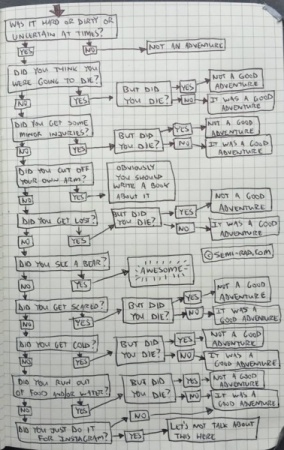 WAS IT HARD OR DIRTY OR
UNCERTAIN AT TIMES?
YES
NO
NOT AN ADVENTURE
DID YOU THINK YOU
WERE GOING TO DIE?
NO
YES
BUT DID
YOU DIE?
YES
NO
NOT A GOOD
ADVENTURE
IT WAS A GOOD
ADVENTURE
DID YOU GET SOME
MINOR INJURIES?
NO
YES
BUT DID
YOU DIE?
YES
NO
NOT A GOOD
ADVENTURE
IT WAS A GOOD
ADVENTURE
DID YOU CUT OFF
YOUR OWN ARM?
NO
YES
OBVIOUSLY
YOU SHOULD
WRITE A BOOK
ABOUT IT
DID YOU GET LOST?
NO
YES
BUT DID
YOU DIE?
YES
NO
NOT A GOOD
ADVENTURE
IT WAS A GOOD
ADVENTURE
© SEMI-RAD.COM
DID YOU SEE A BEAR?
NO
YES
AWESOME
DID YOU GET SCARED?
NO
YES
BUT DID
YOU DIE?
YES
NO
NOT A GOOD
ADVENTURE
IT WAS A
GOOD ADVENTURE
DID YOU GET COLD?
NO
YES
BUT DID
YOU DIE?
YES
NO
NOT A GOOD
ADVENTURE
IT WAS A
GOOD ADVENTURE
DID YOU RUN OUT
OF FOOD AND/OR WATER?
NO
YES
BUT DID
YOU DIE?
YES
NO
NOT A GOOD
ADVENTURE
IT WAS A GOOD
ADVENTURE
DID YOU JUST DO IT
FOR INSTAGRAM?
NO
YES
LET'S NOT TALK ABOUT
THIS HERE